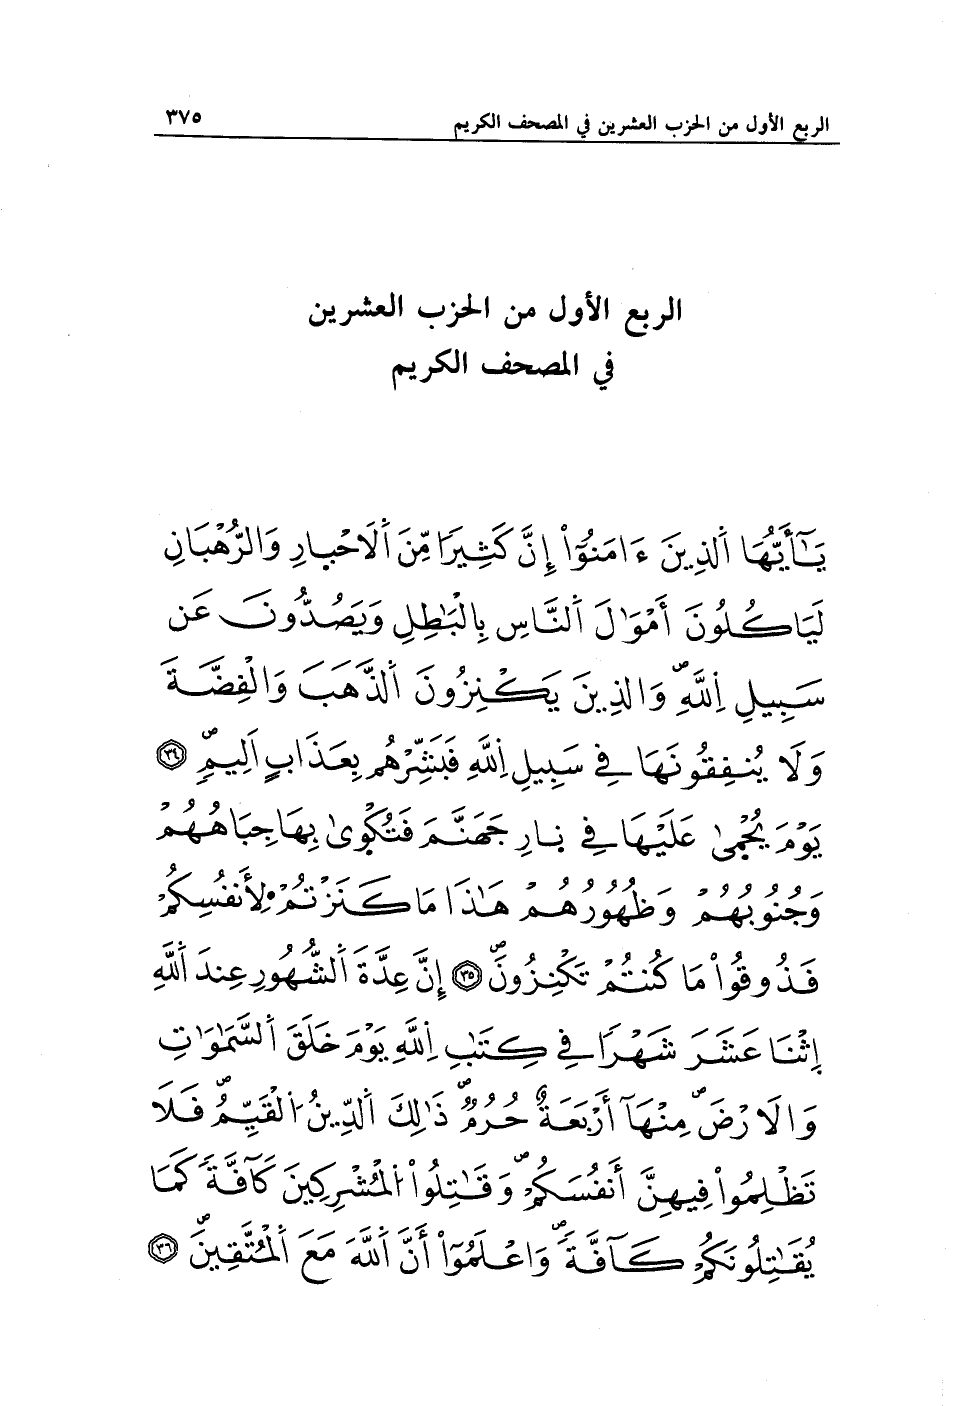 الربع الأول من الحزب العشرين في المصحف الكريم ٣٧٥
الربع الأول من الحزب العشرين
في المصحف الكريم
يَـٰٓأَيُّهَا اَ۬لذِينَ ءَامَنُوٓاْ إِنَّ كَثِيراٗ مِّنَ اَ۬لَاحْبارِ وَالرُّهْبَانِ
لَيَاكُلُونَ أَمْوَٰلَ اَ۬لنَّاسِ بِالْبَٰطِلِ وَيَصُدُّونَ عَن
سَبِيلِ اِ۬للَّهِۖ وَالذِينَ يَكْنِزُونَ اَ۬لذَّهَبَ وَالْفِضَّةَ
وَلَا يُنفِقُونَهَا فِے سَبِيلِ اِ۬للَّهِ فَبَشِّرْهُم بِعَذَابٍ اَلِيمٖۖ ٣٤
يَوْمَ يُحْمىٰ عَلَيْهَا فِے نارِ جَهَنَّمَ فَتُكْوىٰ بِهَا جِبَاهُهُمْ
وَجُنُوبُهُمْ وَظُهُورُهُمْ هَٰذَا مَا كَنَزْتُمْ لِأَنفُسِكُمْ
فَذُوقُواْ مَا كُنتُمْ تَكْنِزُونَۖ ٣٥ إِنَّ عِدَّةَ اَ۬لشُّهُورِ عِندَ اَ۬للَّهِ
اِ۪ثْنَا عَشَرَ شَهْراٗ فِے كِتَٰبِ اِ۬للَّهِ يَوْمَ خَلَقَ اَ۬لسَّمَٰوَٰتِ
وَالَارْضَۖ مِنْهَآ أَرْبَعَةٌ حُرُمٞۖ ذَٰلِكَ اَ۬لدِّينُ اُ۬لْقَيِّمُۖ فَلَا
تَظْلِمُواْ فِيهِنَّ أَنفُسَكُمْۖ وَقَٰتِلُواْ اُ۬لْمُشْرِكِينَ كَآفَّةٗ كَمَا
يُقَٰتِلُونَكُمْ كَآفَّةٗۖ وَاعْلَمُوٓاْ أَنَّ اَ۬للَّهَ مَعَ اَ۬لْمُتَّقِينَۖ ٣٦